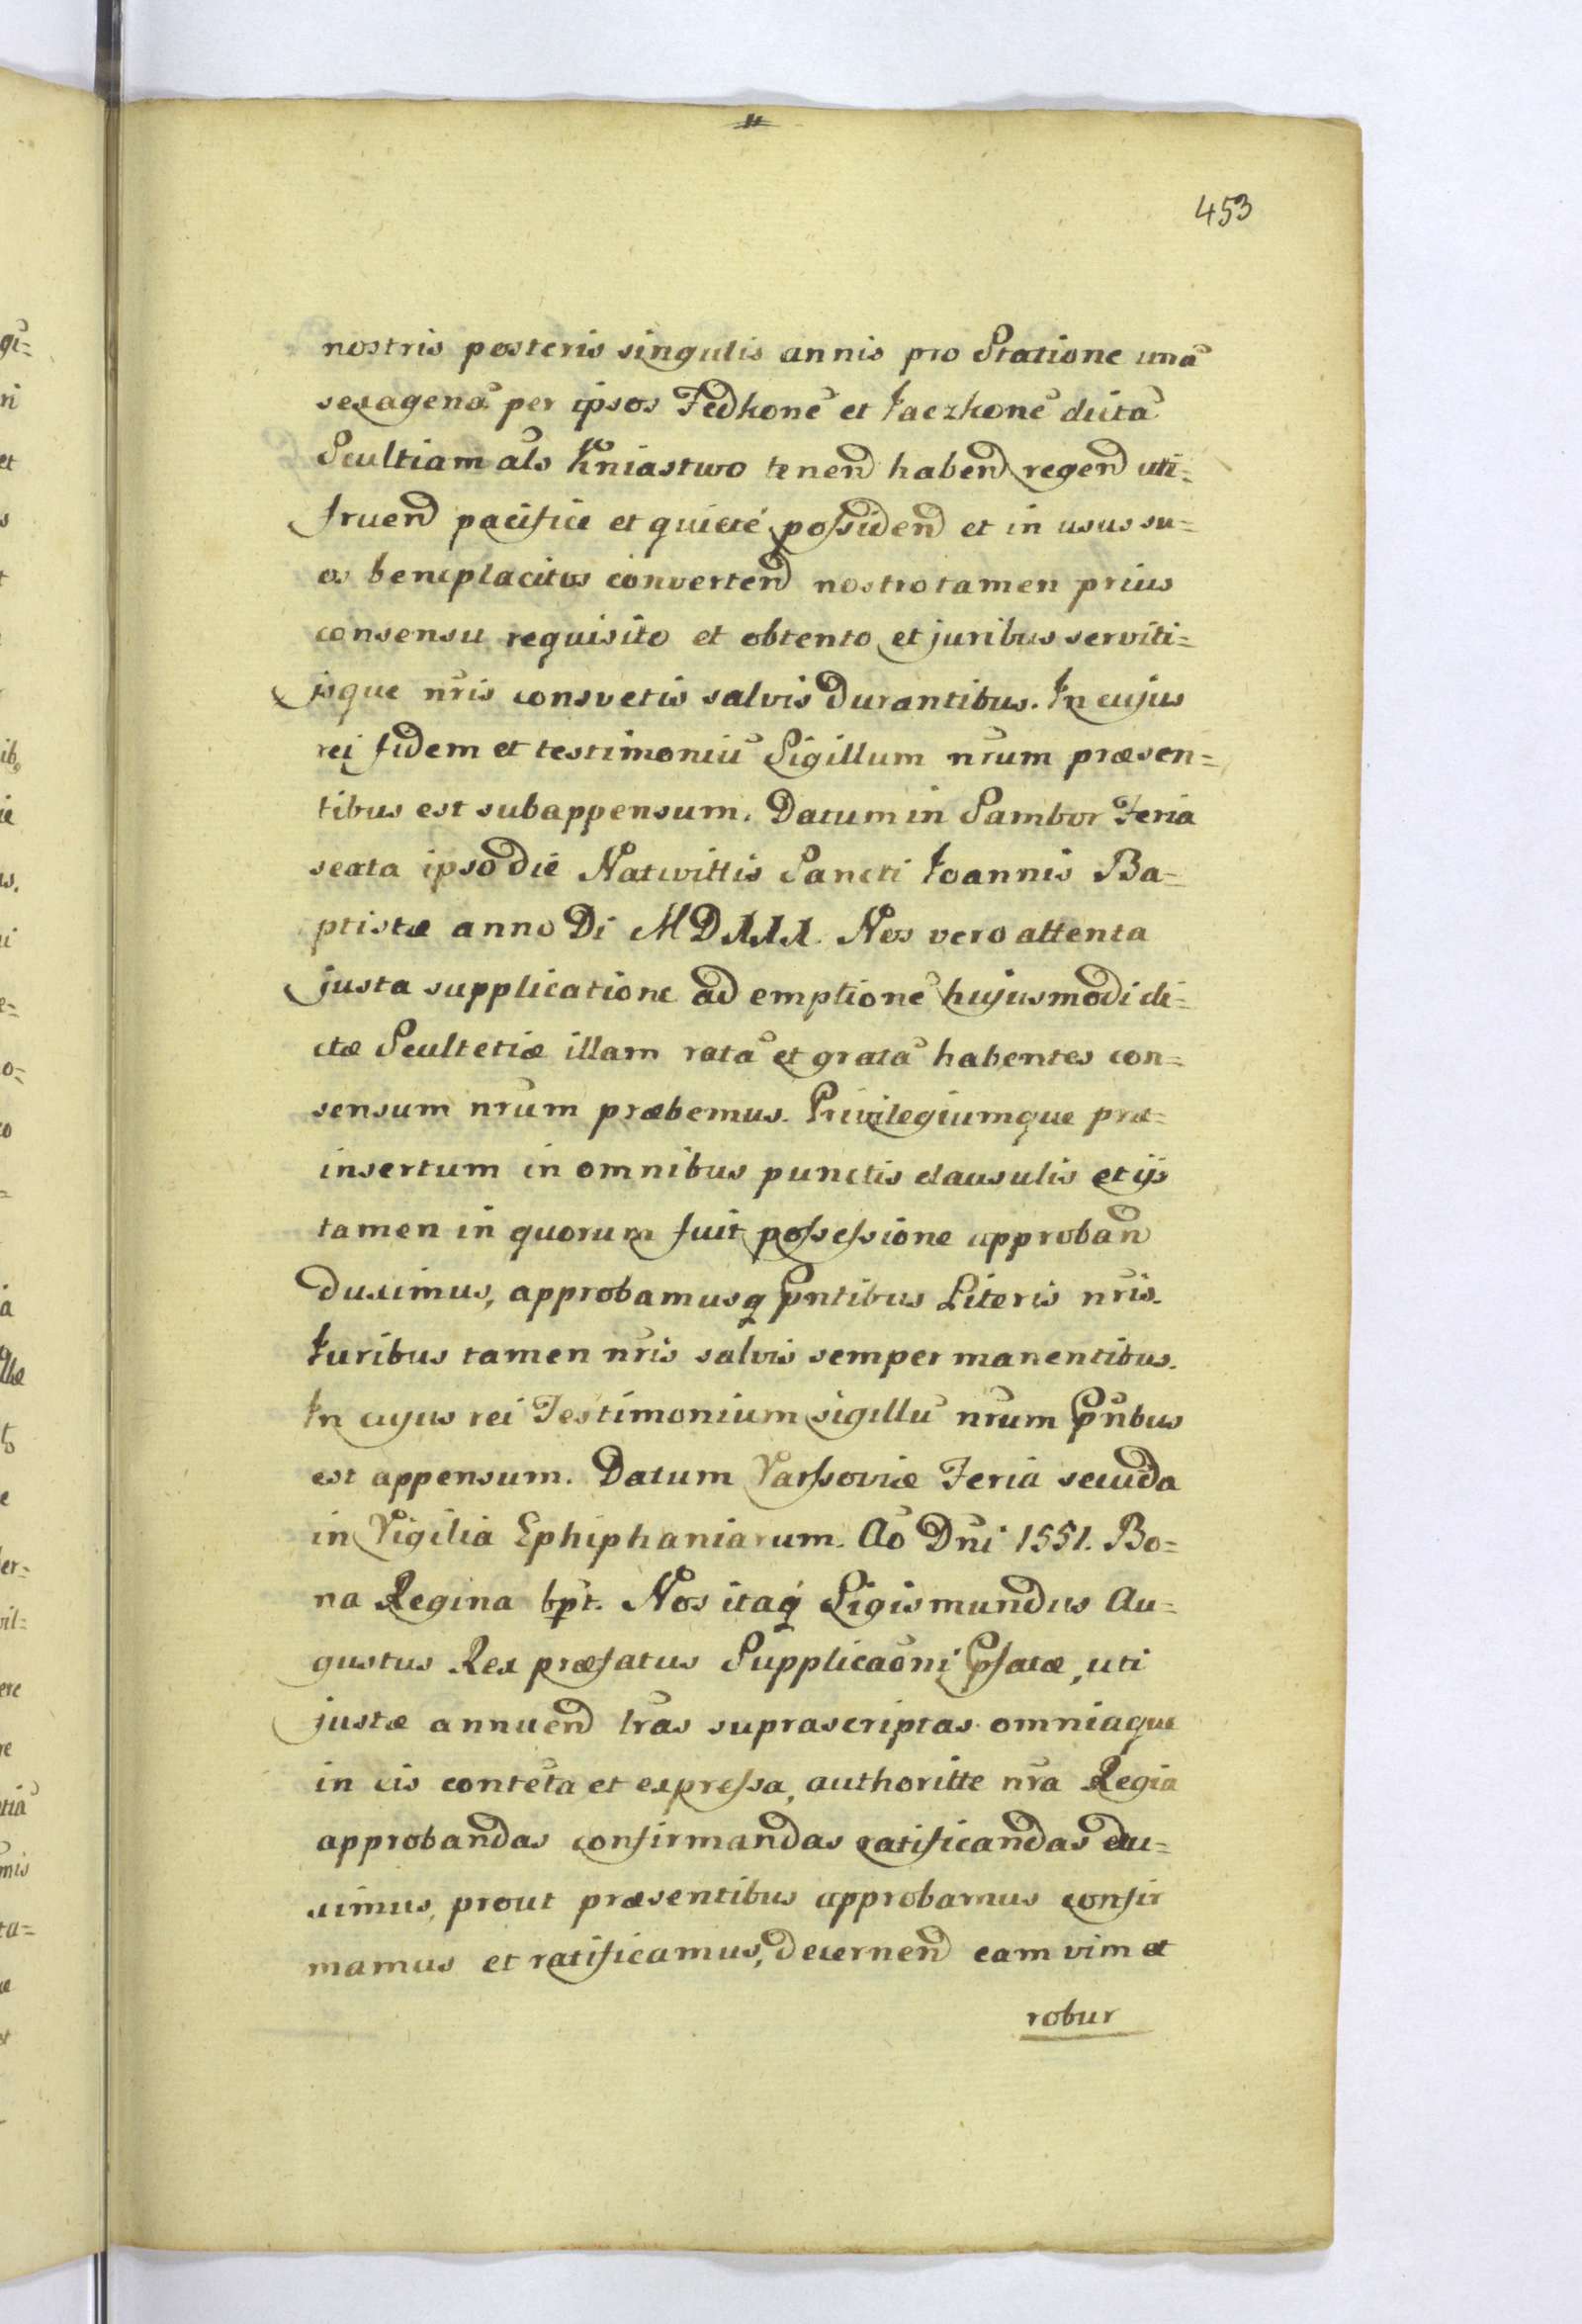 453
nostris posteris singulis annis pro Statione unã
sexagenã per ipsos Fedkonẽ et Jaczkonẽ dictã
Scultiam als Kniastwo tenend habend regend uti=
fruend pacifice et quietè possidend et in usus su=
os beneplacitos convertend nostro tamen prius
consensu requisito et obtento et juribus serviti=
jsque nr̃is consvetis salvis durantibus. In cujus
rei fidem et testimoniũ Sigillum nr̃um præsen=
tibus est subappensum. Datum in Sambor Feria
sexta ipso die Nativittis Sancti Joannis Ba=
ptistæ anno Di MDXXX. Nos vero attenta
justa supplicatione ad emptionẽ hujusmodi di=
ctæ Scultetiæ illam ratã et gratã habentes con=
sensum nr̃um præbemus. Privilegiumque præ=
insertum in omnibus punctis clausulis et ijs
tamen in quorum fuit possessione approban̄
duximus, approbamusq pntibus Literis nr̃is.
Juribus tamen nr̃is salvis semper manentibus.
In cujus rei Testimonium sigillũ nr̃um pñbus
est appensum. Datum Varssoviæ Feria secuda
in Vigilia Ephiphaniarum. Aõ Dñi 1551. Bo=
na Regina spt. Nos itaq Sigismundus Au=
gustus Rex præfatus Supplicaõni pfatæ, uti
justæ annuend lr̃as suprascriptas omniaque
in eis contẽta et expressa, authoritte nr̃a Regia
approbandas confirmandas ratificandas du=
ximus, prout præsentibus approbamus confir
mamus et ratificamus, decernend eam vim et
robur